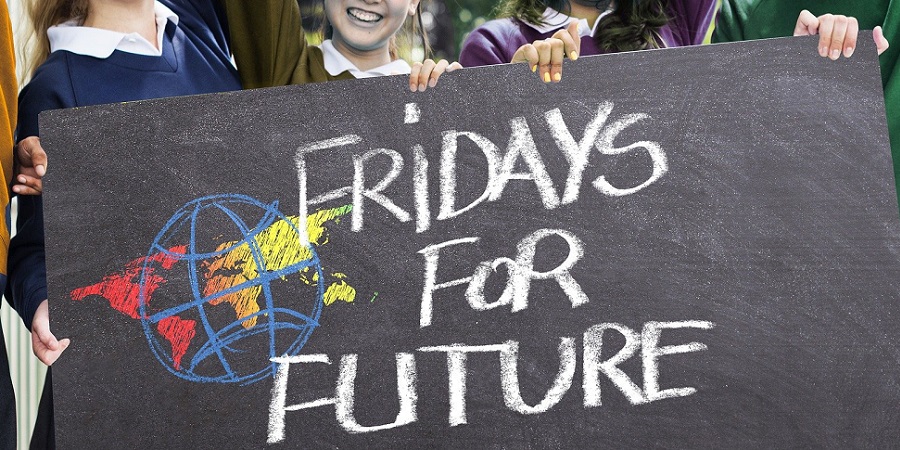 FRiDAYS
FOR
FUTURE